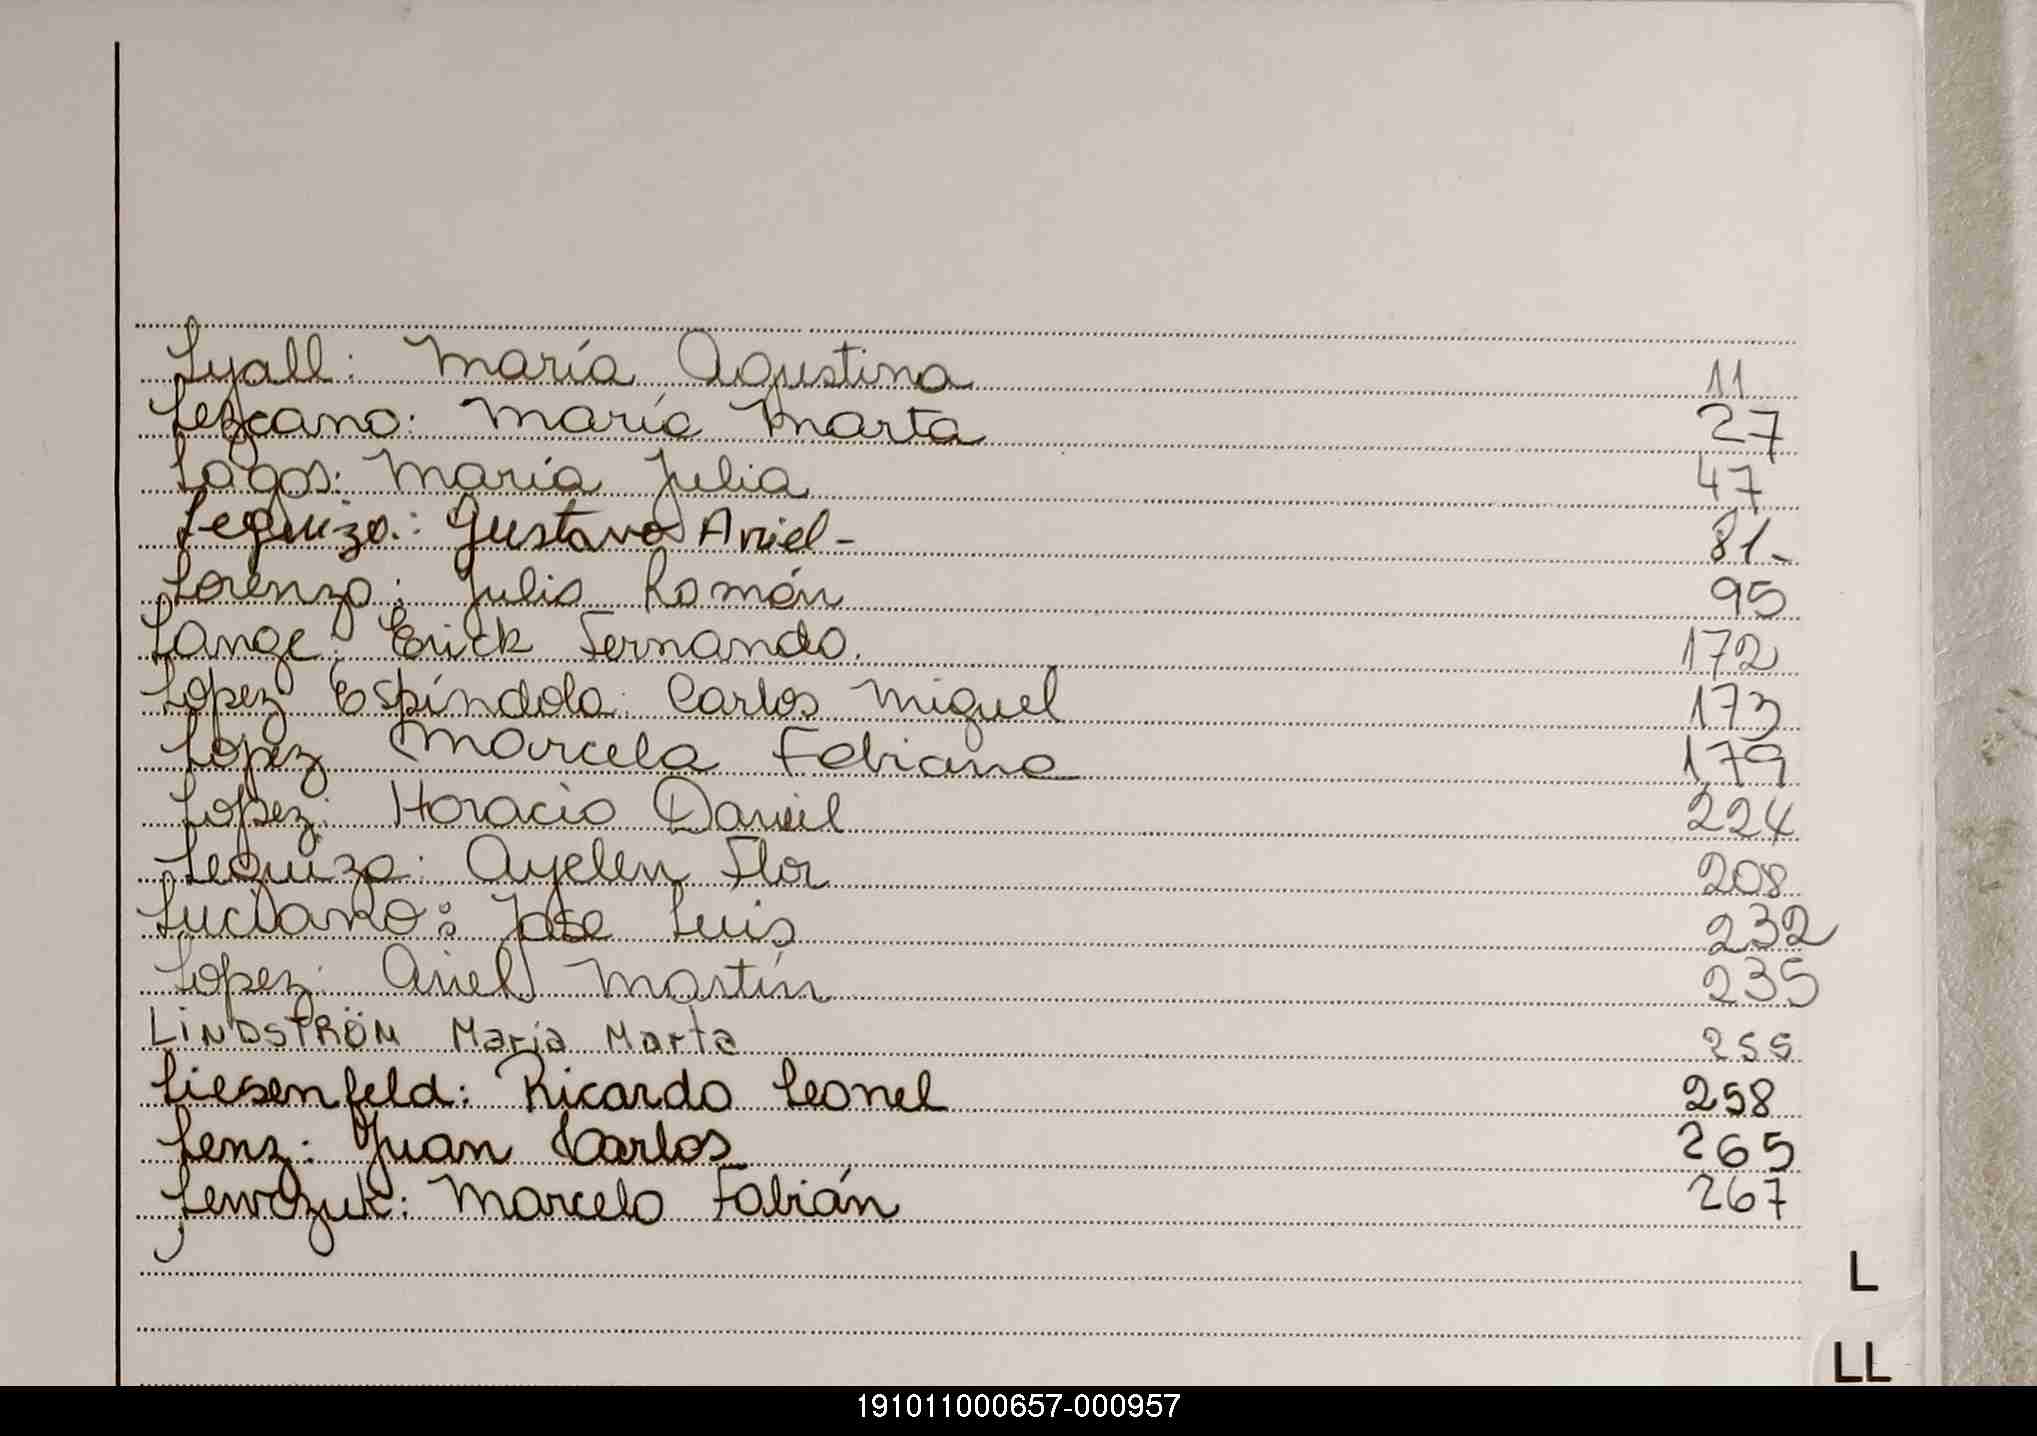 Lyall: María Agustina 11
Lezcano: María Marta 27
Lagos: María Julia 47
Leguiza: Gustavo Ariel- 81-
Lorenzo: Julio Román 95
Lange: Erick Fernando. 172
Lopez Espíndola: Carlos Miguel 173
Lopez Marcela Fabiana 179
Lopez: Horacio Daniel 224
Leguiza: Ayelen Flor 208
Luciano: Jose Luis 232
Lopez: Ariel Martín 235
LINDSTRÖM María Marta 255
Liesenfeld: Ricardo Leonel 258
Lenz: Juan Carlos 265
Lewczuk: Marcelo Fabián 267
L
LL
191011000657-000957